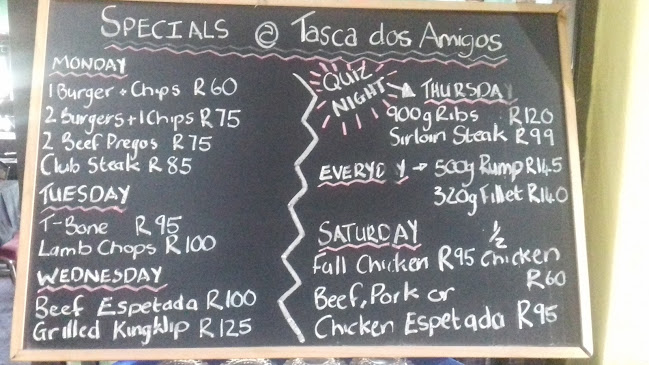 SPECIALS @ TASCA dos AMIGOS
MONDAY
1 Burger + Chips R60
2 Burgers + 1 Chips R75
2 Beef Pregos R75
Club Steak R85
TUESDAY
T-Bone R95
Lamb Chops R100
WEDNESDAY
Beef Espetada R100
Grilled Kingklip R125
QUIZ NIGHT → THURSDAY
900g Ribs R120
Sirloin Steak R99
EVERYDY → 500g Rump R145
320g Fillet R140
SATURDAY
Full Chicken R95 1/2 Chicken
R60
Beef, Pork or
Chicken Espetada R95